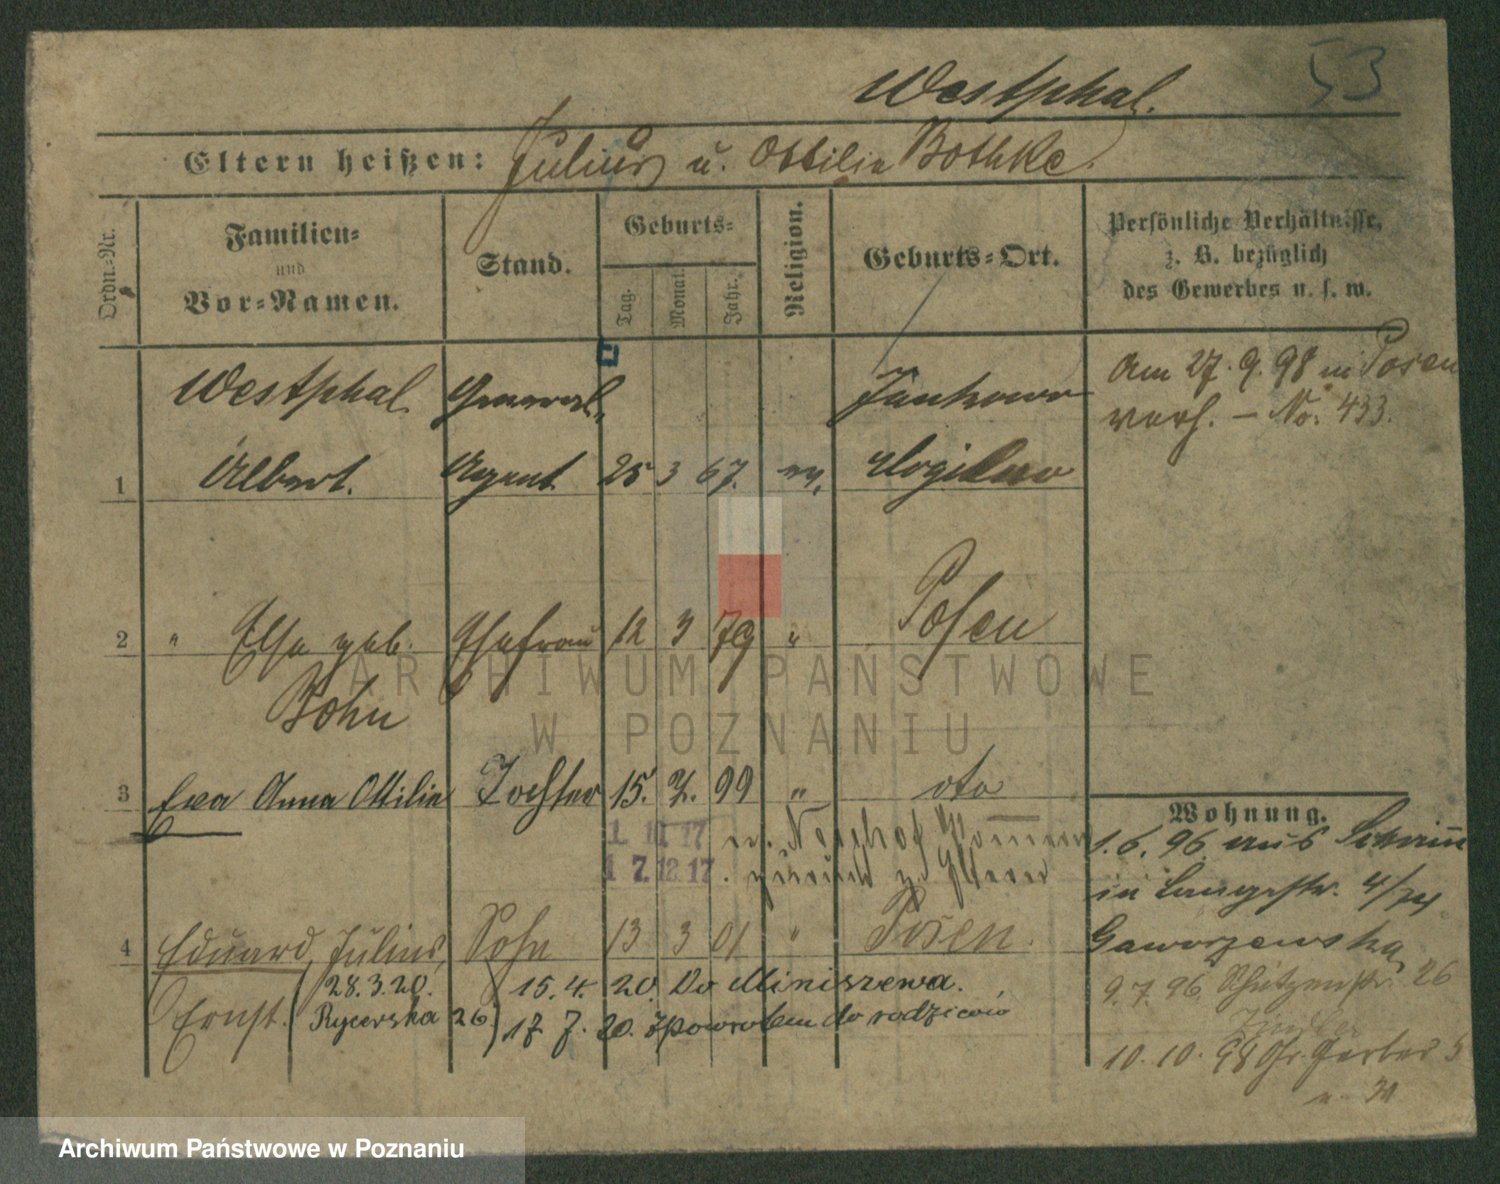 53
Westphal.
Eltern heißen: Julius u. Ottilie Bothke.
Ordn.-Nr.
Familien-
und
Vor-Namen.
Stand.
Geburts-
Tag.
Monat.
Jahr.
Religion.
Geburts-Ort.
Persönliche Verhältnisse,
z. B. bezüglich
des Gewerbes u. s. w.
Westphal General-
Am 27.9.98 in Posen
verh. – No. 433.
1 Albert. Agent 25 3 67. ev. Mogilno
2 " Else geb. Ehefrau 12 3 79 " Posen
Bohn
3 Eva Anna Ottilie Tochter 15. 7. 99 " dto
1 11 17 n.
17.12.17. zurück z. Eltern
4 Eduard, Julius, Sohn 13 3 01 " Posen.
Ernst. (28.3.20. 15.4.20. Do Miniszewa.
Rycerska 26) 17.7.20. Zpowrotem do rodziców
Wohnung.
1.6.96 aus Schrimm
in Langestr. 4/
9.7.96 Schützenstr. 26
10.10.98 Gr. Gerber 5
ARCHIWUM PAŃSTWOWE
W POZNANIU
Archiwum Państwowe w Poznaniu